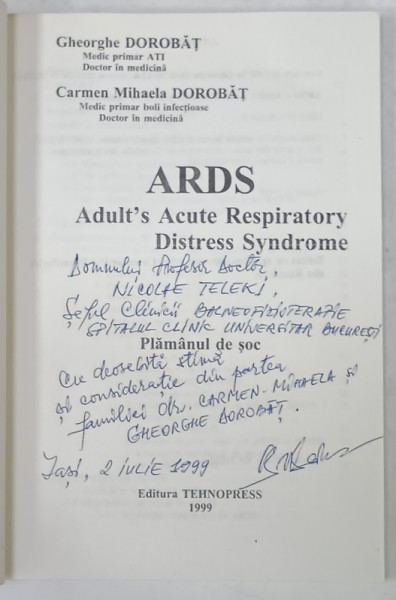 Gheorghe DOROBĂȚ
Medic primar ATI
Doctor în medicină
Carmen Mihaela DOROBĂȚ
Medic primar boli infecțioase
Doctor în medicină
ARDS
Adult's Acute Respiratory
Distress Syndrome
Domnului Profesor Doctor,
NICOLAE TELEKI,
Șeful Clinicii BALNEOFIZIOTERAPIE
SPITALUL CLINIC UNIVERSITAR BUCUREȘTI
Plămânul de șoc
Cu deosebită stimă
și considerație din partea
familiei drs. CARMEN-MIHAELA și
GHEORGHE DOROBĂȚ.
Iași, 2 IULIE 1999
Editura TEHNOPRESS
1999